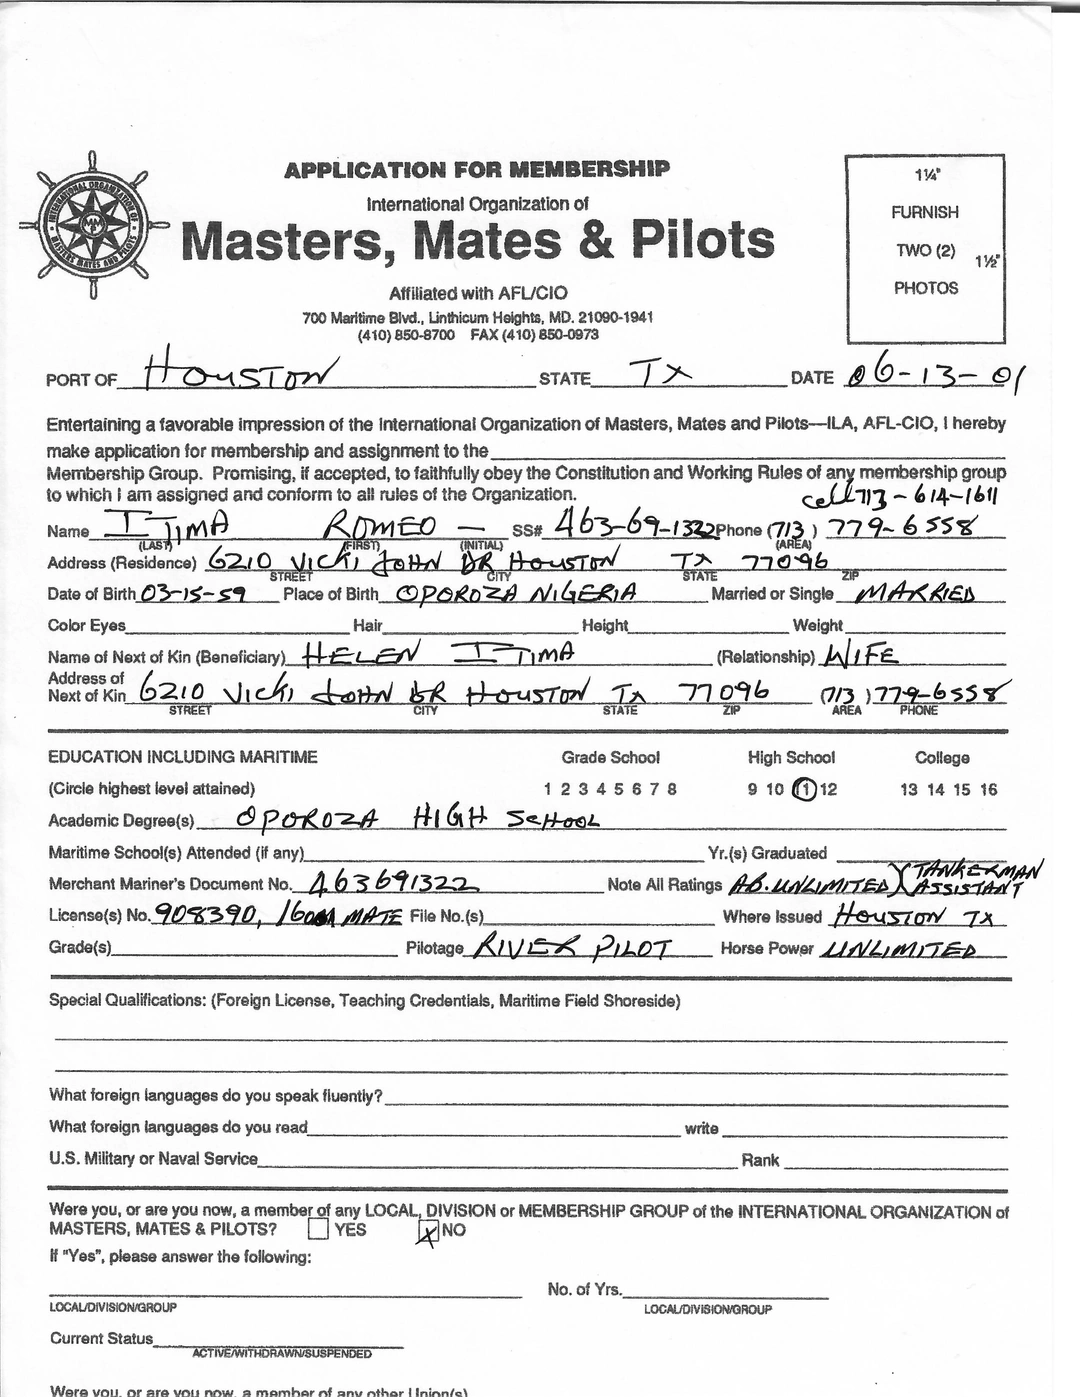 APPLICATION FOR MEMBERSHIP
International Organization of
Masters, Mates & Pilots
Affiliated with AFL/CIO
700 Maritime Blvd., Linthicum Heights, MD. 21090-1941
(410) 850-8700 FAX (410) 850-0973
INTERNATIONAL ORGANIZATION OF MASTERS MATES AND PILOTS
1¼"
FURNISH
TWO (2) 1½"
PHOTOS
PORT OF HOUSTON STATE TX DATE 06-13-01
Entertaining a favorable impression of the International Organization of Masters, Mates and Pilots—ILA, AFL-CIO, I hereby
make application for membership and assignment to the
Membership Group. Promising, if accepted, to faithfully obey the Constitution and Working Rules of any membership group
to which I am assigned and conform to all rules of the Organization.
cell 713-614-1611
Name ITIMA ROMEO — SS# 463-69-1322 Phone (713) 779-6558
(LAST) (FIRST) (INITIAL) (AREA)
Address (Residence) 6210 VICKI JOHN DR HOUSTON TX 77096
STREET CITY STATE ZIP
Date of Birth 03-15-59 Place of Birth OPOROZA NIGERIA Married or Single MARRIED
Color Eyes Hair Height Weight
Name of Next of Kin (Beneficiary) HELEN ITIMA (Relationship) WIFE
Address of
Next of Kin 6210 VICKI JOHN DR HOUSTON TX 77096 (713) 779-6558
STREET CITY STATE ZIP AREA PHONE
EDUCATION INCLUDING MARITIME Grade School High School College
(Circle highest level attained) 1 2 3 4 5 6 7 8 9 10 11 12 13 14 15 16
Academic Degree(s) OPOROZA HIGH SCHOOL
Maritime School(s) Attended (if any) Yr.(s) Graduated
Merchant Mariner's Document No. 463691322 Note All Ratings AB. UNLIMITED TANKERMAN ASSISTANT
License(s) No. 908390, MATE File No.(s) Where Issued HOUSTON TX
Grade(s) Pilotage RIVER PILOT Horse Power UNLIMITED
Special Qualifications: (Foreign License, Teaching Credentials, Maritime Field Shoreside)
What foreign languages do you speak fluently?
What foreign languages do you read write
U.S. Military or Naval Service Rank
Were you, or are you now, a member of any LOCAL, DIVISION or MEMBERSHIP GROUP of the INTERNATIONAL ORGANIZATION of
MASTERS, MATES & PILOTS? YES X NO
If "Yes", please answer the following:
No. of Yrs.
LOCAL/DIVISION/GROUP LOCAL/DIVISION/GROUP
Current Status
ACTIVE/WITHDRAWN/SUSPENDED
Were you, or are you now, a member of any other Union(s)